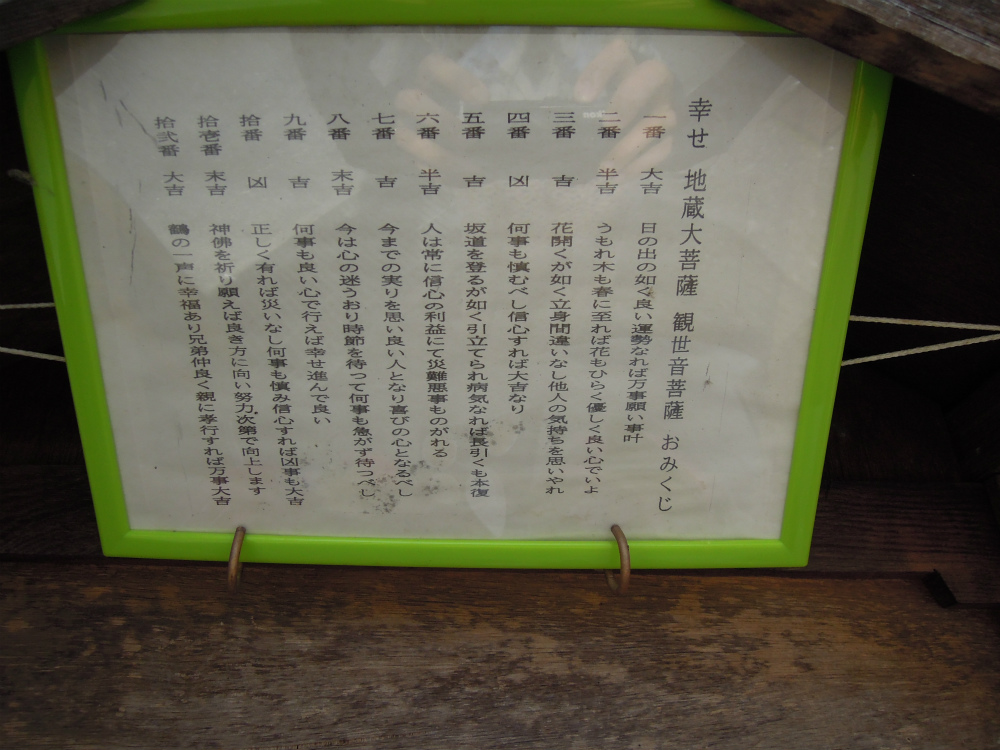 幸せ 地蔵大菩薩 観世音菩薩 おみくじ
一番 大吉 日の出の如く良い運勢なれば万事願い事叶
二番 半吉 うもれ木も春に至れば花もひらく優しく良い心でいよ
三番 吉 花開くが如く立身間違いなし他人の気持ちを思いやれ
四番 凶 何事も慎むべし信心すれば大吉なり
五番 吉 坂道を登るが如く引立てられ病気なれば長引くも本復
六番 半吉 人は常に信心の利益にて災難悪事ものがれる
七番 吉 今までの実りを思い良い人となり喜びの心となるべし
八番 末吉 今は心の迷うおり時節を待って何事も急がず待つべし
九番 吉 何事も良い心で行えば幸せ進んで良い
拾番 凶 正しく有れば災いなし何事も慎み信心すれば凶事も大吉
拾壱番 末吉 神佛を祈り願えば良き方に向い努力次第で向上します
拾弐番 大吉 鶴の一声に幸福あり兄弟仲良く親に孝行すれば万事大吉